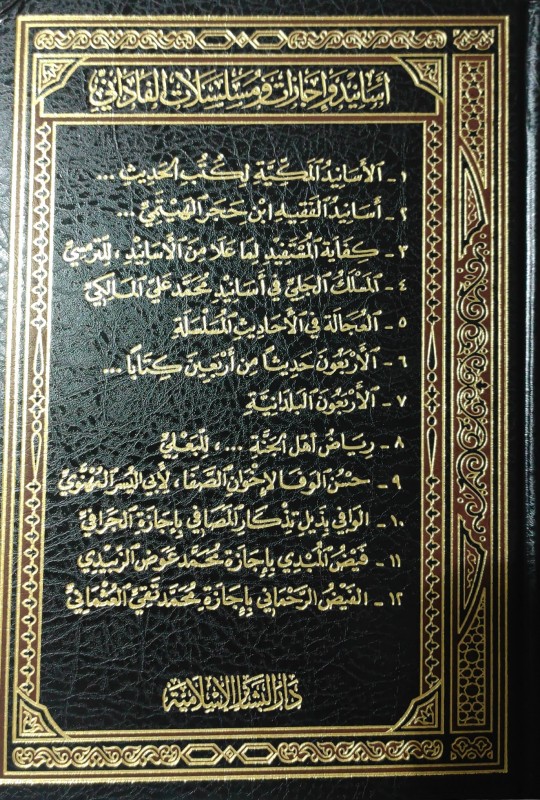 أسانيد وإجازات ومسلسلات الفاداني
١ - الأَسَانِيدُ المَكِّيَّة لِكُتُبِ الحَدِيثِ ...
٢ - أسَانيد الفَقيه ابْن حَجَر الهَيْتَمِيّ ...
٣ - كفَاية المُسْتَفيد لمَا عَلَا مِنَ الأَسَانيْد ، للتَّرمسِيّ
٤ - المَسْلَكُ الجَلِيّ في أسَانيْد مُحَمَّد عَلِيّ المَالِكِيّ
٥ - العُجَالَة فِي الأَحَادِيثِ المُسَلْسَلَةِ
٦ - الأَرْبَعُونَ حَدِيثًا مِن أَرْبَعِينَ كِتَابًا ...
٧ - الأَرْبَعُونَ البُلْدَانِيَّة
٨ - رِيَاضُ أهْل الجَنَّةِ ... ، للبَعْلِيّ
٩ - حُسْنُ الوَفَا لإِخْوَانِ الصَّفَا ، لأَبِي اليُسْر البُهْنَويّ
١٠ - الوَافِي بِذَيل تذْكَار المَصَافِي بِإجَازَةِ الجرَافِيّ
١١ - فَيْضُ المُبْدِي بِإجَازَةِ مُحَمَّد عَوَض الزَّبيْدِي
١٢ - الفَيْضُ الرَّحْمَانِي بِإجَازَةِ مُحَمَّد تَقِيّ العُثْمَانِيّ
دار البشائر الإسلامية